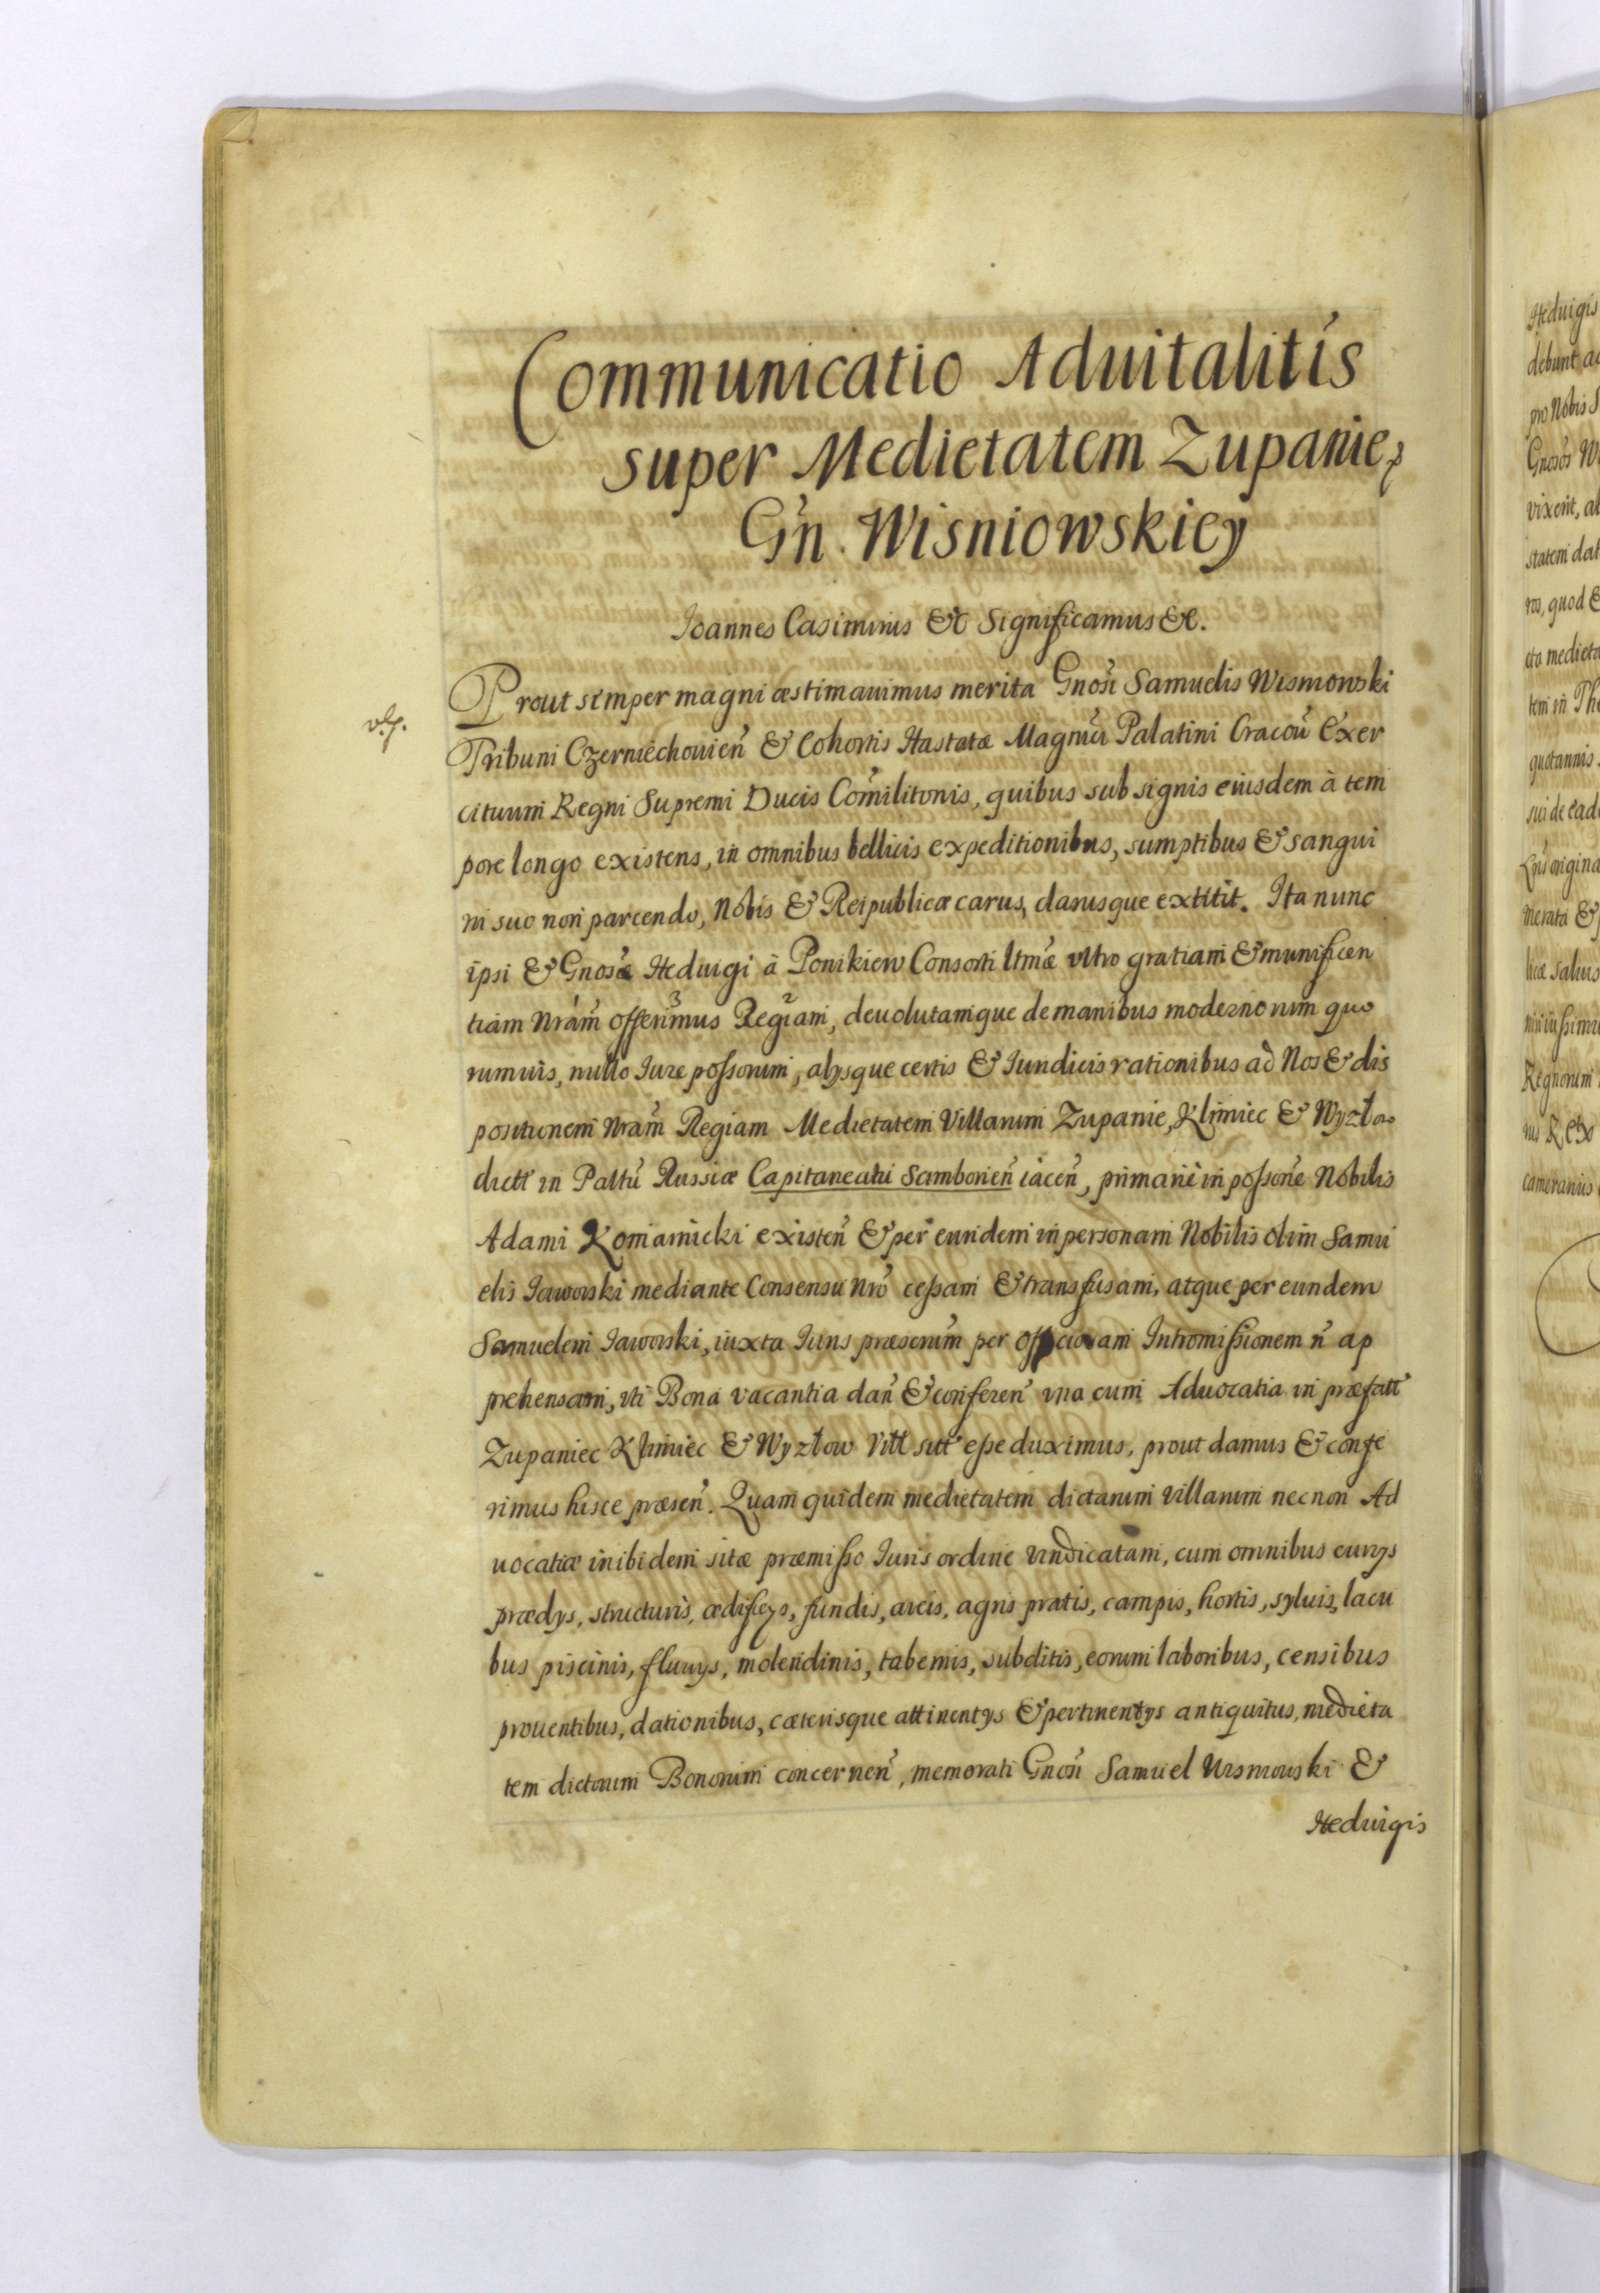 Communicatio Aduitalitis
super Medietatem Zupanie,
Gn. Wisniowskiey
Ioannes Casimirus &c Significamus &c.
Prout semper magni æstimauimus merita Gnosi Samuelis Wisniowski
Tribuni Czerniechouien & Cohortis Hastatæ Magnci Palatini Cracou Exer
cituum Regni Supremi Ducis Comilitonis, quibus sub signis eiusdem à tem
pore longo existens, in omnibus bellicis expeditionibus, sumptibus & sangui
ni suo non parcendo, Nobis & Reipublicæ carus, clarusque extitit. Ita nunc
ipsi & Gnosæ Heduigi à Ponikiew Consorti ltmæ vltro gratiam & munificen
tiam Nram offerimus Regiam, deuolutamque de manibus modernorum quo
rumuis, nullo Iure possorum, alysque certis & Iuridicis rationibus ad Nos & dis
positionem Nram Regiam Medietatem Villarum Zupanie, Klimiec & Wyzłow
dictt in Paltu Russiæ Capitaneatu Samborien iacen, primarie in possone Nobilis
Adami Komarnicki existen & per eundem in personam Nobilis olim Samu
elis Jaworski mediante Consensu Nro cessam & transfusam, atque per eundem
Samuelem Jaworski, iuxta Iuris præscrum per officiosam Intromissionem n ap
prehensam, vti Bona vacantia dan & conferen vna cum Aduocatia in præfatt
Zupaniec Klimiec & Wyzłow Vill sitt esse duximus, prout damus & confe
rimus hisce præsen. Quam quidem medietatem dictarum villarum necnon Ad
uocatiæ inibidem sitæ præmisso Iuris ordine vindicatam, cum omnibus eurys
prædys, structuris, ædificys, fundis, areis, agris pratis, campis, hortis, syluis, lacu
bus piscinis, fluuys, molendinis, tabernis, subditis, eorum laboribus, censibus
prouentibus, dationibus, cæterisque attinentys & pertinentys antiquitus, medieta
tem dictorum Bonorum concernen, memorati Gnosi Samuel Wisniowski &
Heduigis